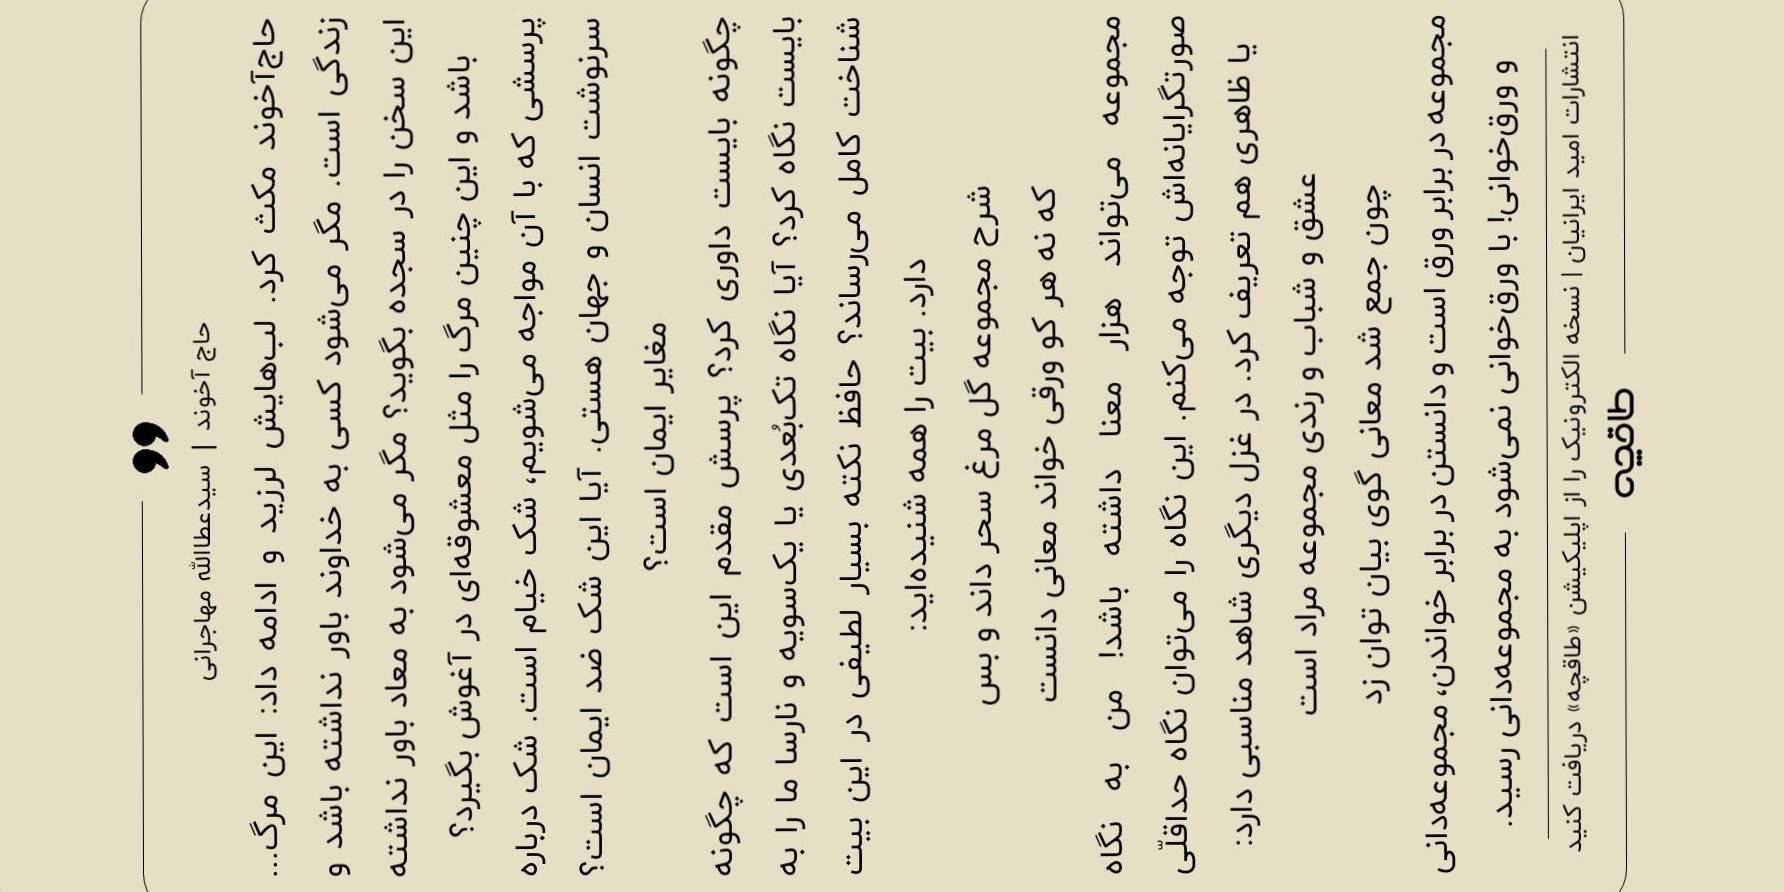 حاج آخوند | سیدعطاالله مهاجرانی
حاج‌آخوند مکث کرد. لب‌هایش لرزید و ادامه داد: این مرگ...
زندگی است. مگر می‌شود کسی به خداوند باور نداشته باشد و
این سخن را در سجده بگوید؟ مگر می‌شود به معاد باور نداشته
باشد و این چنین مرگ را مثل معشوقه‌ای در آغوش بگیرد؟
پرسشی که با آن مواجه می‌شویم، شک خیام است. شک درباره
سرنوشت انسان و جهان هستی. آیا این شک ضد ایمان است؟
مغایر ایمان است؟
چگونه بایست داوری کرد؟ پرسش مقدم این است که چگونه
بایست نگاه کرد؟ آیا نگاه تک‌بُعدی یا یک‌سویه و نارسا ما را به
شناخت کامل می‌رساند؟ حافظ نکته بسیار لطیفی در این بیت
دارد. بیت را همه شنیده‌اید:
شرح مجموعه گل مرغ سحر داند و بس
که نه هر کو ورقی خواند معانی دانست
مجموعه می‌تواند هزار معنا داشته باشد! من به نگاه
صورتگرایانه‌اش توجه می‌کنم. این نگاه را می‌توان نگاه حداقلّی
یا ظاهری هم تعریف کرد. در غزل دیگری شاهد مناسبی دارد:
عشق و شباب و رندی مجموعه مراد است
چون جمع شد معانی گوی بیان توان زد
مجموعه در برابر ورق است و دانستن در برابر خواندن، مجموعه‌دانی
و ورق‌خوانی! با ورق‌خوانی نمی‌شود به مجموعه‌دانی رسید.
انتشارات امید ایرانیان | نسخه الکترونیک را از اپلیکیشن «طاقچه» دریافت کنید
طاقچه